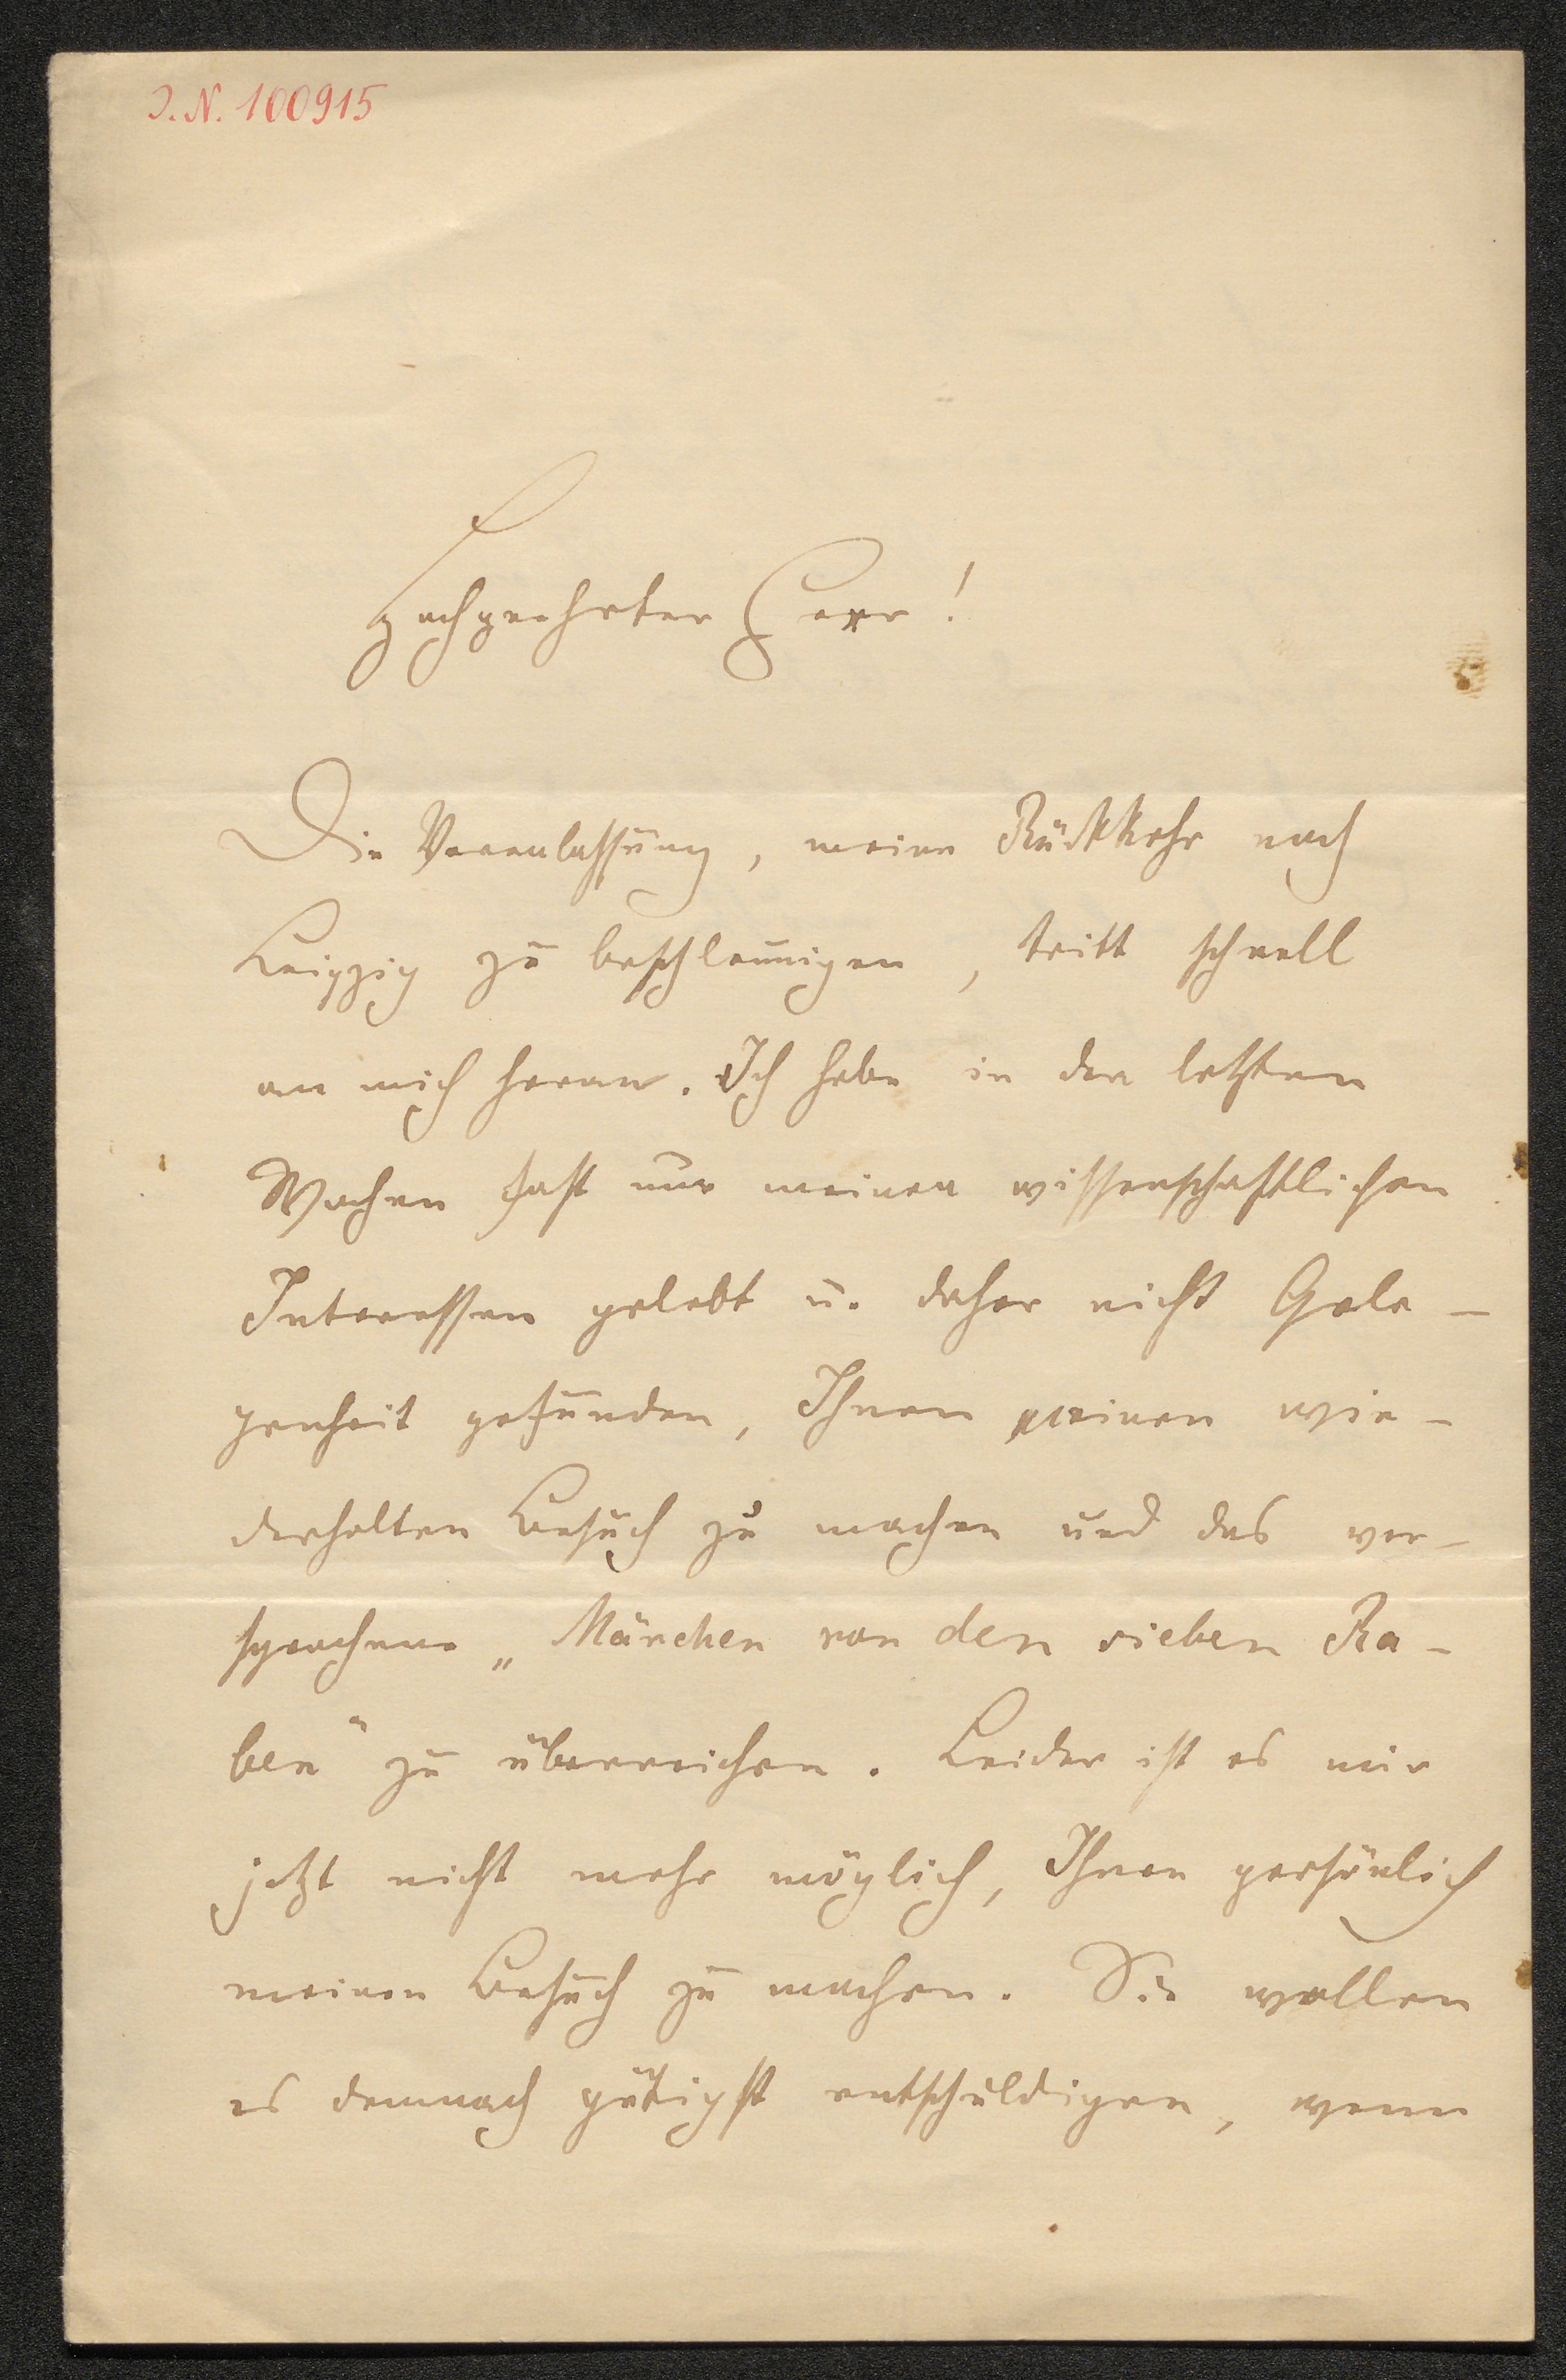 J. N. 100915
Hochgeehrter Herr!
Die Veranlassung, meine Rückkehr nach
Leipzig zu beschleunigen, tritt schnell
an mich heran. Ich habe in den letzten
Wochen fast nur meinen wissenschaftlichen
Interessen gelebt u. daher nicht Gele-
genheit gefunden, Ihnen meinen wie-
derholten Besuch zu machen und das ver-
sprochene „Märchen von den sieben Ra-
ben“ zu überreichen. Leider ist es mir
jetzt nicht mehr möglich, Ihnen persönlich
meinen Besuch zu machen. Sie wollen
es demnach gütigst entschuldigen, wenn